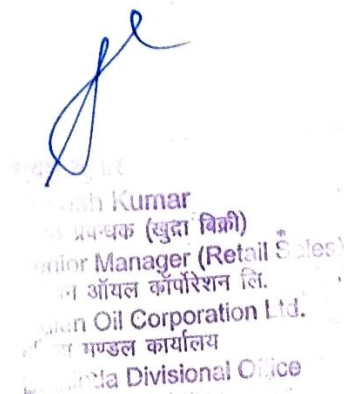 Kumar
प्रबन्धक (खुदरा बिक्री)
Senior Manager (Retail Sales)
ऑयल कॉर्पोरेशन लि.
Indian Oil Corporation Ltd.
मण्डल कार्यालय
Divisional Office